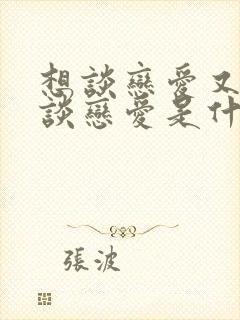 想談戀愛又
談戀愛是什
張波